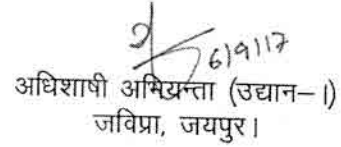 6/9/17
अधिशाषी अभियन्ता (उद्यान-I)
जविप्रा, जयपुर।